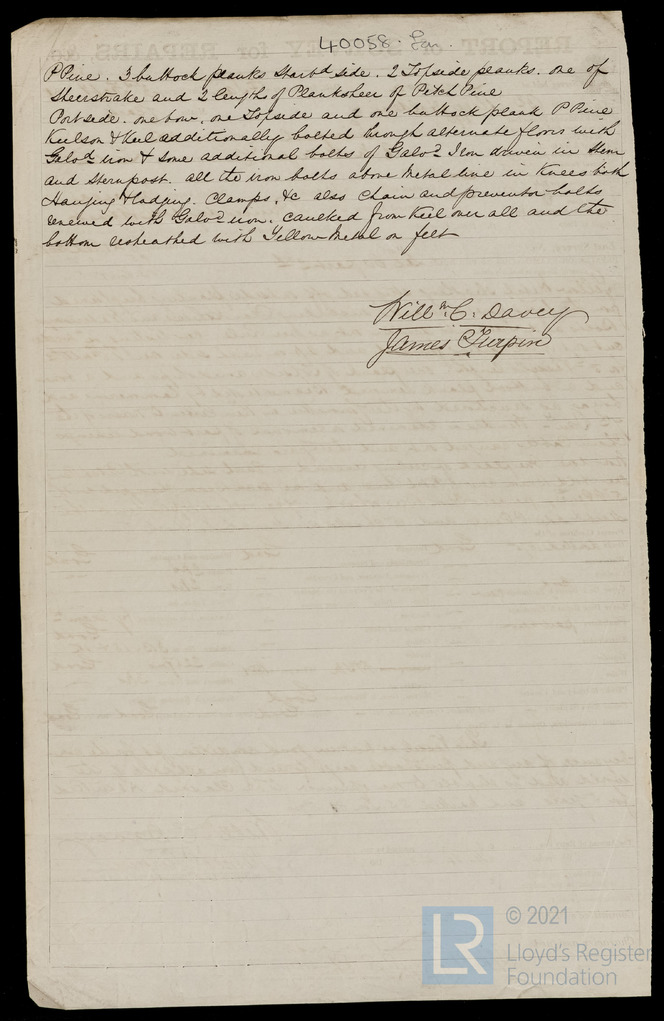 40058. Lon.
P Pine. 3 buttock planks Starbd side. 2 Topside planks. one of
Sheerstrake and 2 lengths of Planksheer of Pitch Pine
Port side. one bow, one Topside and one buttock plank P Pine
Keelson & Keel additionally bolted through alternate floors with
Galvd iron & some additional bolts of Galvd Iron driven in Stem
and Sternpost. all the iron bolts above metal line in Knees both
Hanging & lodging. Clamps, &c also Chain and preventor bolts
renewed with Galvd iron. Caulked from Keel over all and the
bottom resheathed with Yellow Metal on felt
Willm C. Davey
James Turpin
LR
© 2021
Lloyd's Register
Foundation